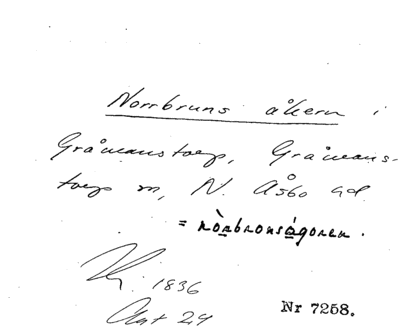 Norrbruns åkern i
Gråmanstorp, Gråmans-
torp sn, N. Åsbo hd.
= nòrbronságoren.
1836
Akt 24
Nr 7258.